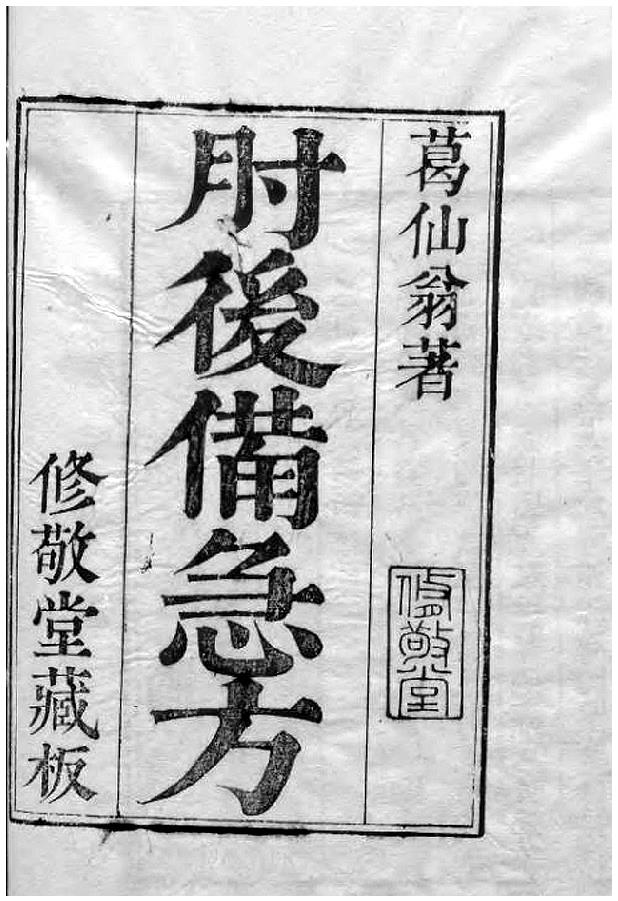 葛仙翁著
修敬堂
肘後備急方
修敬堂藏板